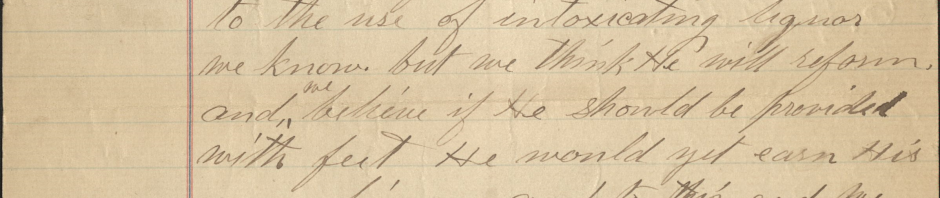 to the use of intoxicating liquor
we know. but we think He will reform.
and, we believe if He should be provided
with feet He would yet earn His
and to this and